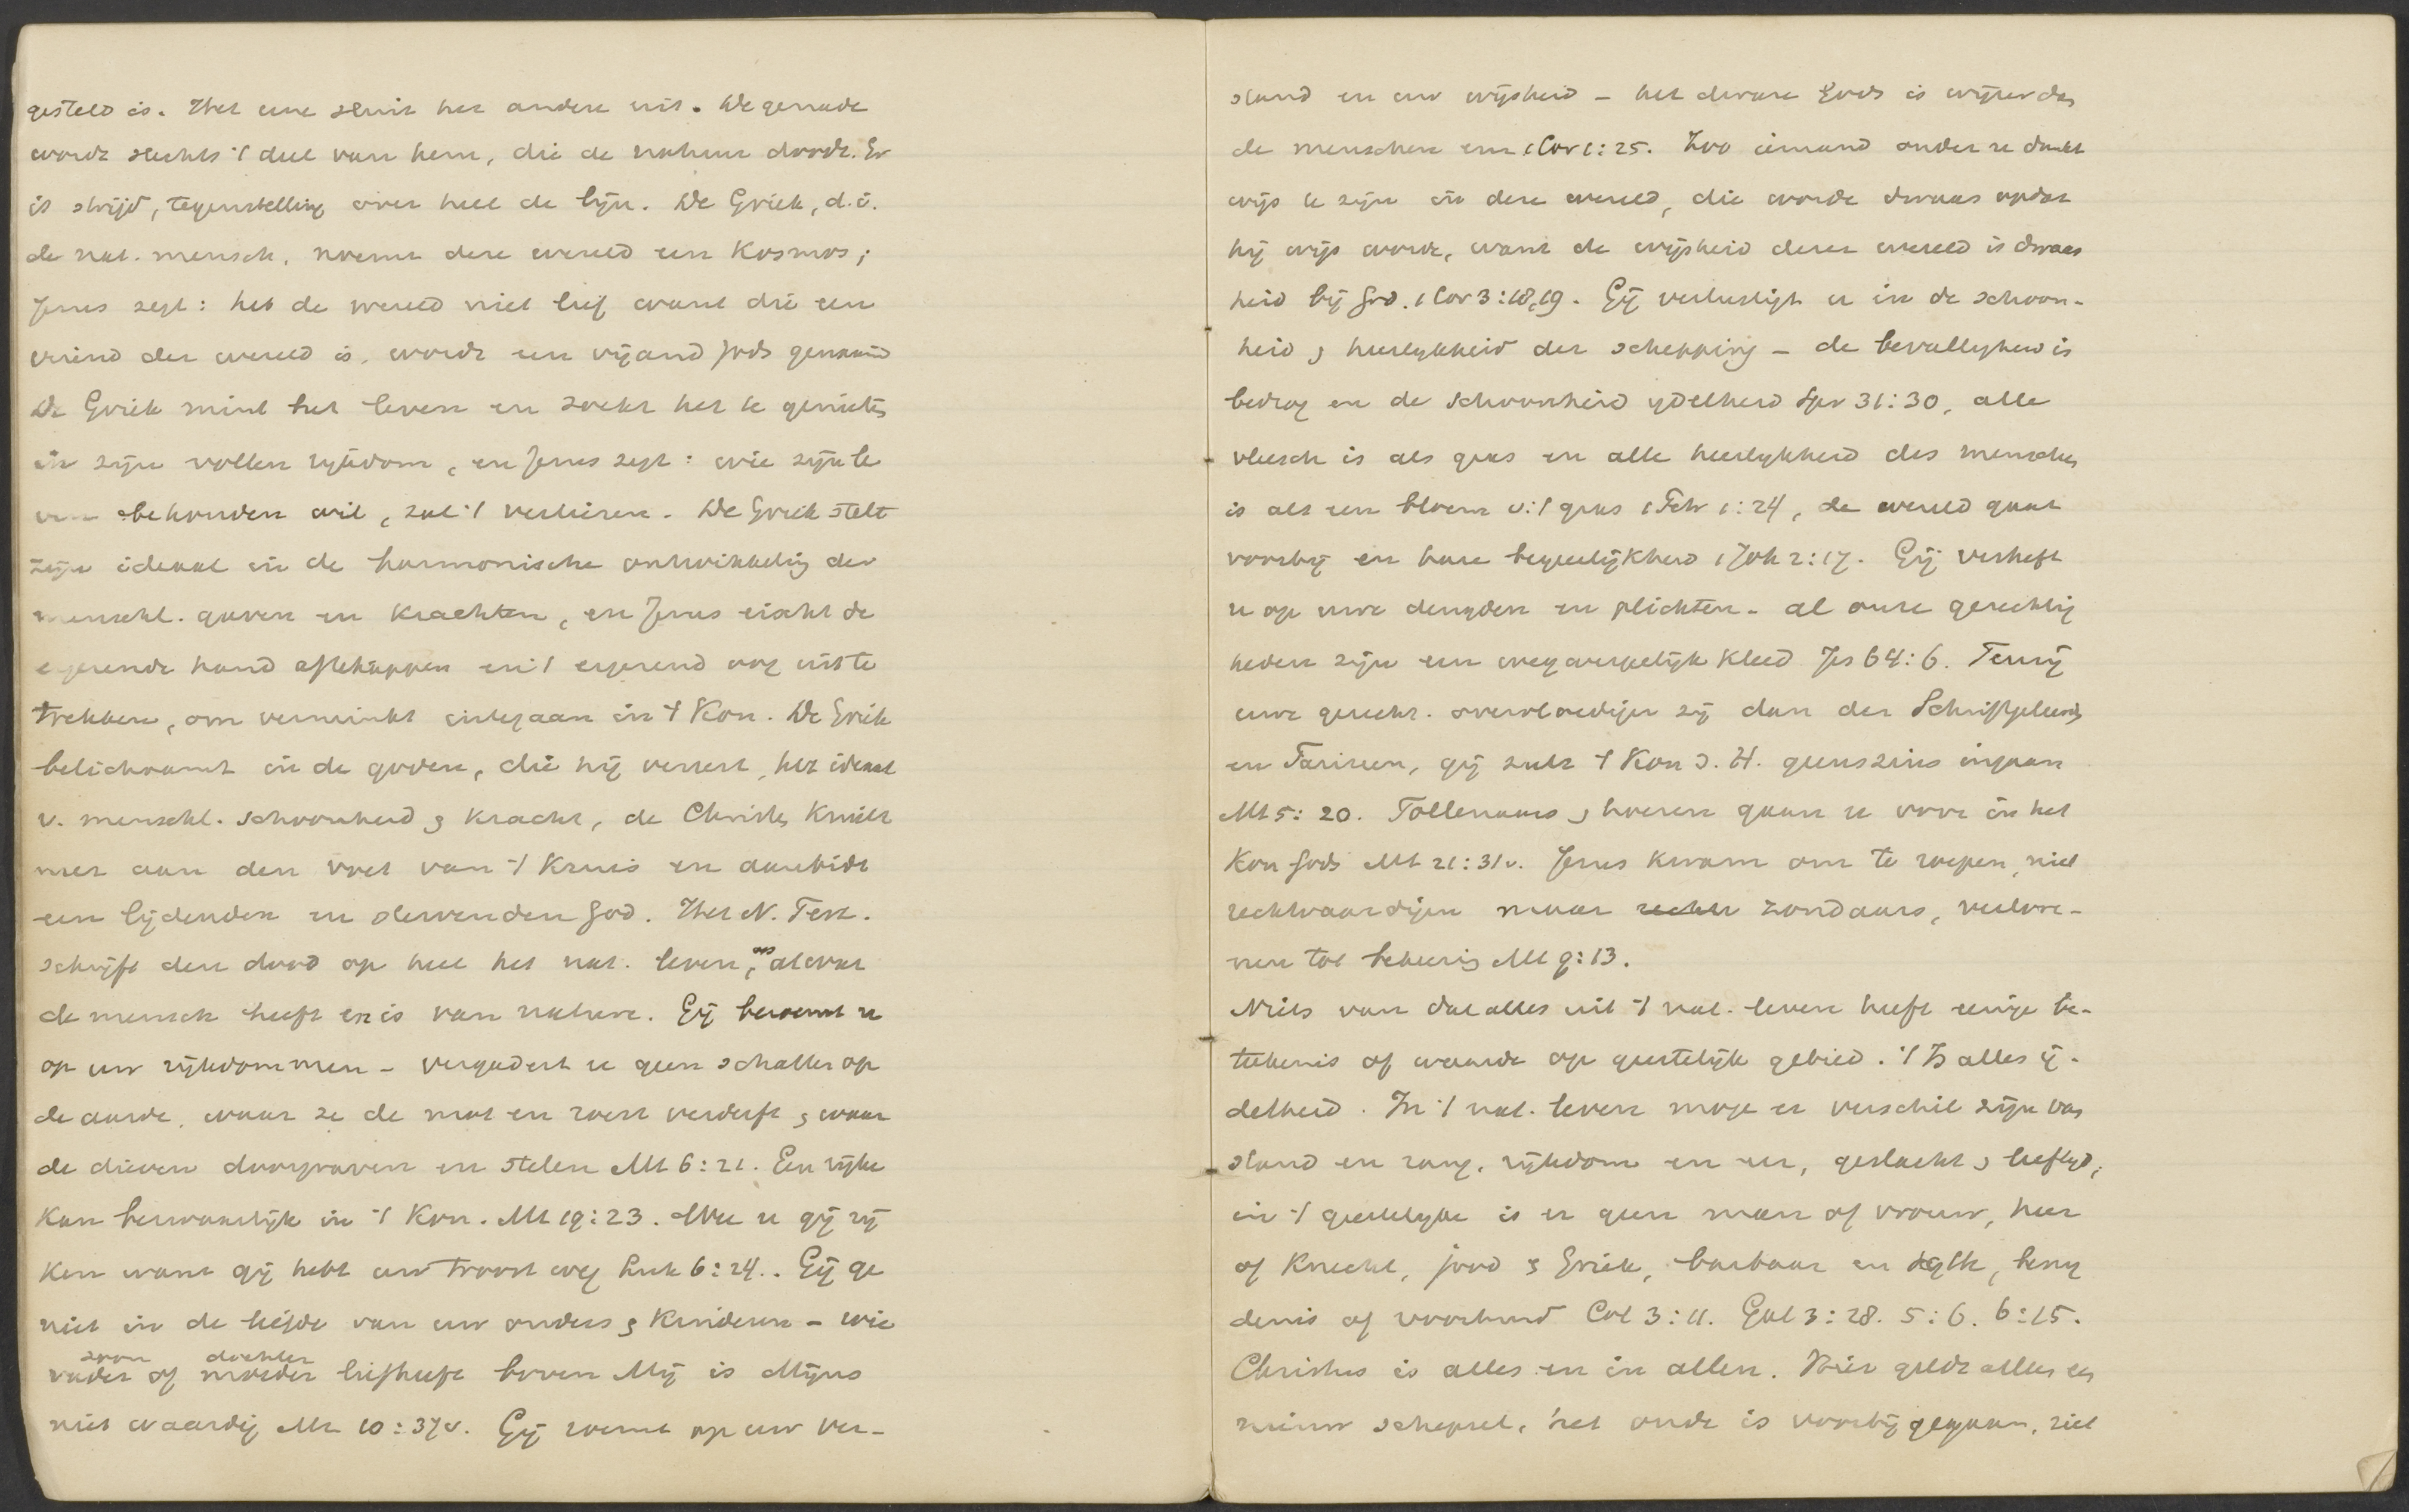 gesteld is. Het eene sluit het andere uit. De genade
wordt slechts 't deel van hem, die de natuur doodt. Er
is strijd, tegenstelling over heel de lijn. De Griek, d.i.
de nat. mensch, noemt deze wereld een Kosmos;
Jezus zegt: heb de wereld niet lief want die een
vriend der wereld is, wordt een vijand Gods genaamd
De Griek mint het leven en zoekt het te genieten
in zijn vollen rijkdom, en Jezus zegt: wie zijn le
ven behouden wil, zal 't verliezen. De Griek stelt
zijn ideaal in de harmonische ontwikkeling der
menschl. gaven en krachten, en Jezus eischt de
ergerende hand afteheppen en 't ergerend oog uit te
trekken, om verminkt integaan in 't Kon. De Griek
belichaamt in de goden, die hij vereert, het ideaal
v. menschl. schoonheid & kracht, de Christen knielt
neer aan den voet van 't Kruis en aanbidt
een lijdenden en stervenden God. Het N. Test.
schrijft den dood op heel het nat. leven, op al wat
de mensch heeft en is van nature. Gij beroemt u
op uw rijkdommen - vergadert u geen schatten op
de aarde, waar ze de mot en roest verderft & waar
de dieven doorgraven en stelen Mt 6:21. Een rijke
kan bezwaarlijk in 't Kon. Mt 19:23. Wee u gij rij
ken want gij hebt uw troost weg Luk 6:24.. Gij ge
niet in de liefde van uw ouders & kinderen - wie
zoon dochter
vader of moeder liefheeft boven Mij is Mijns
niet waardig Mt 10:37v. Gij roemt op uw ver-
stand en uw wijsheid - het dwaze Gods is wijzer dan
de menschen en 1 Cor 1:25. Zoo iemand onder u dunkt
wijs te zijn in deze wereld, die worde dwaas opdat
hij wijs worde, want de wijsheid dezer wereld is dwaas
heid bij God. 1 Cor 3:18,19. Gij verlustigt u in de schoon-
heid & heerlykheid der schepping - de bevalligheid is
bedrog en de schoonheid ydelheid Spr 31:30, alle
vleesch is als gras en alle heerlykheid des menschen
is als een bloem v. 't gras 1 Petr 1:24, de wereld gaat
voorbij en hare begeerlijkheid 1 Joh 2:17. Gij verheft
u op uwe deugden en plichten - al onze gerechtig
heden zijn een wegwerpelijk kleed Jes 64:6. Tenzij
uwe gerecht. overvloediger zij dan der Schriftgeleerden
en Farizeen, gij zult 't Kon d. H. geenszins ingaan
Mt 5:20. Tollenaars & hoeren gaan u voor in het
Kon Gods Mt 21:31v. Jezus kwam om te roepen, niet
rechtvaardigen maar rechtv zondaars, verlore-
nen tot bekering Mt 9:13.
Niets van dat alles uit 't nat. leven heeft eenige be-
teekenis of waarde op geestelijk gebied. 't Is alles ij-
delheid. In 't nat. leven moge er verschil zijn van
stand en rang, rijkdom en eer, geslacht & leeftijd;
in 't geestelyke is er geen man of vrouw, heer
of knecht, jood & Griek, barbaar en Scyth, besny
denis of voorhuid Col 3:11. Gal 3:28. 5:6. 6:15.
Christus is alles en in allen. Hier geldt alles een
nieuw schepsel, het oude is voorbij gegaan, ziet